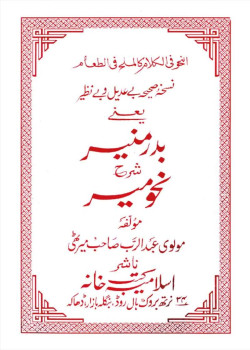 النحو فی الکلام کالملح فی الطعام
نسخۂ صحیحہ بے عدیل و بے نظیر
یعنے
بدر منیر
شرح
نحو میر
مؤلفہ
مولوی عبد الرب صاحب میرٹھی
ناشر
اسلامیہ کتب خانہ
نرتھ بروک ہال روڈ، بنگلہ بازار، ڈھاکہ